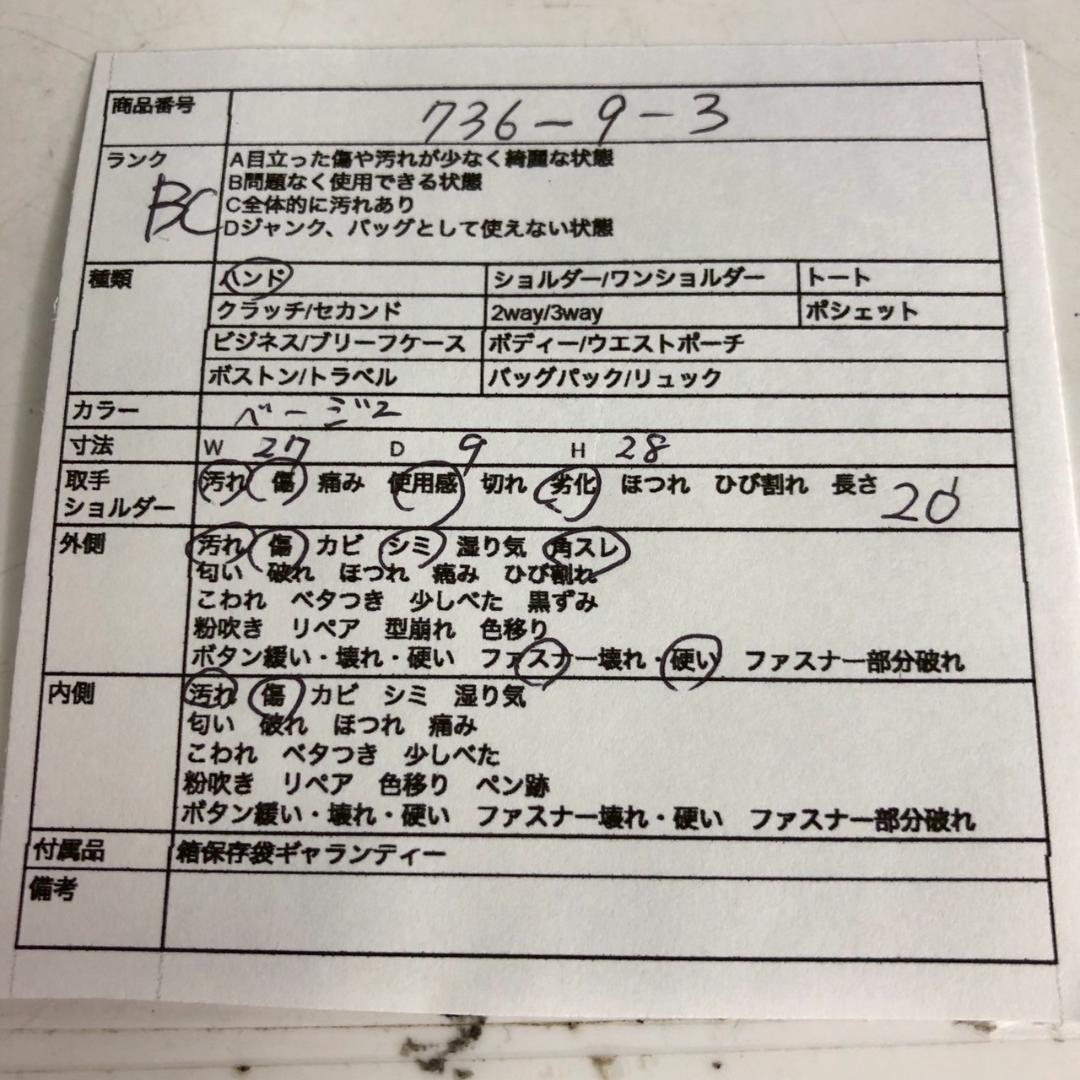 商品番号 736-9-3
ランク BC
A目立った傷や汚れが少なく綺麗な状態
B問題なく使用できる状態
C全体的に汚れあり
Dジャンク、バッグとして使えない状態
種類 ハンド ショルダー/ワンショルダー トート
クラッチ/セカンド 2way/3way ポシェット
ビジネス/ブリーフケース ボディー/ウエストポーチ
ボストン/トラベル バッグパック/リュック
カラー ベージュ
寸法 W 27 D 9 H 28
取手 汚れ 傷 痛み 使用感 切れ 劣化 ほつれ ひび割れ 長さ 20
ショルダー
外側 汚れ 傷 カビ シミ 湿り気 角スレ
匂い 破れ ほつれ 痛み ひび割れ
こわれ ベタつき 少しべた 黒ずみ
粉吹き リペア 型崩れ 色移り
ボタン緩い・壊れ・硬い ファスナー壊れ・硬い ファスナー部分破れ
内側 汚れ 傷 カビ シミ 湿り気
匂い 破れ ほつれ 痛み
こわれ ベタつき 少しべた
粉吹き リペア 色移り ペン跡
ボタン緩い・壊れ・硬い ファスナー壊れ・硬い ファスナー部分破れ
付属品 箱保存袋ギャランティー
備考